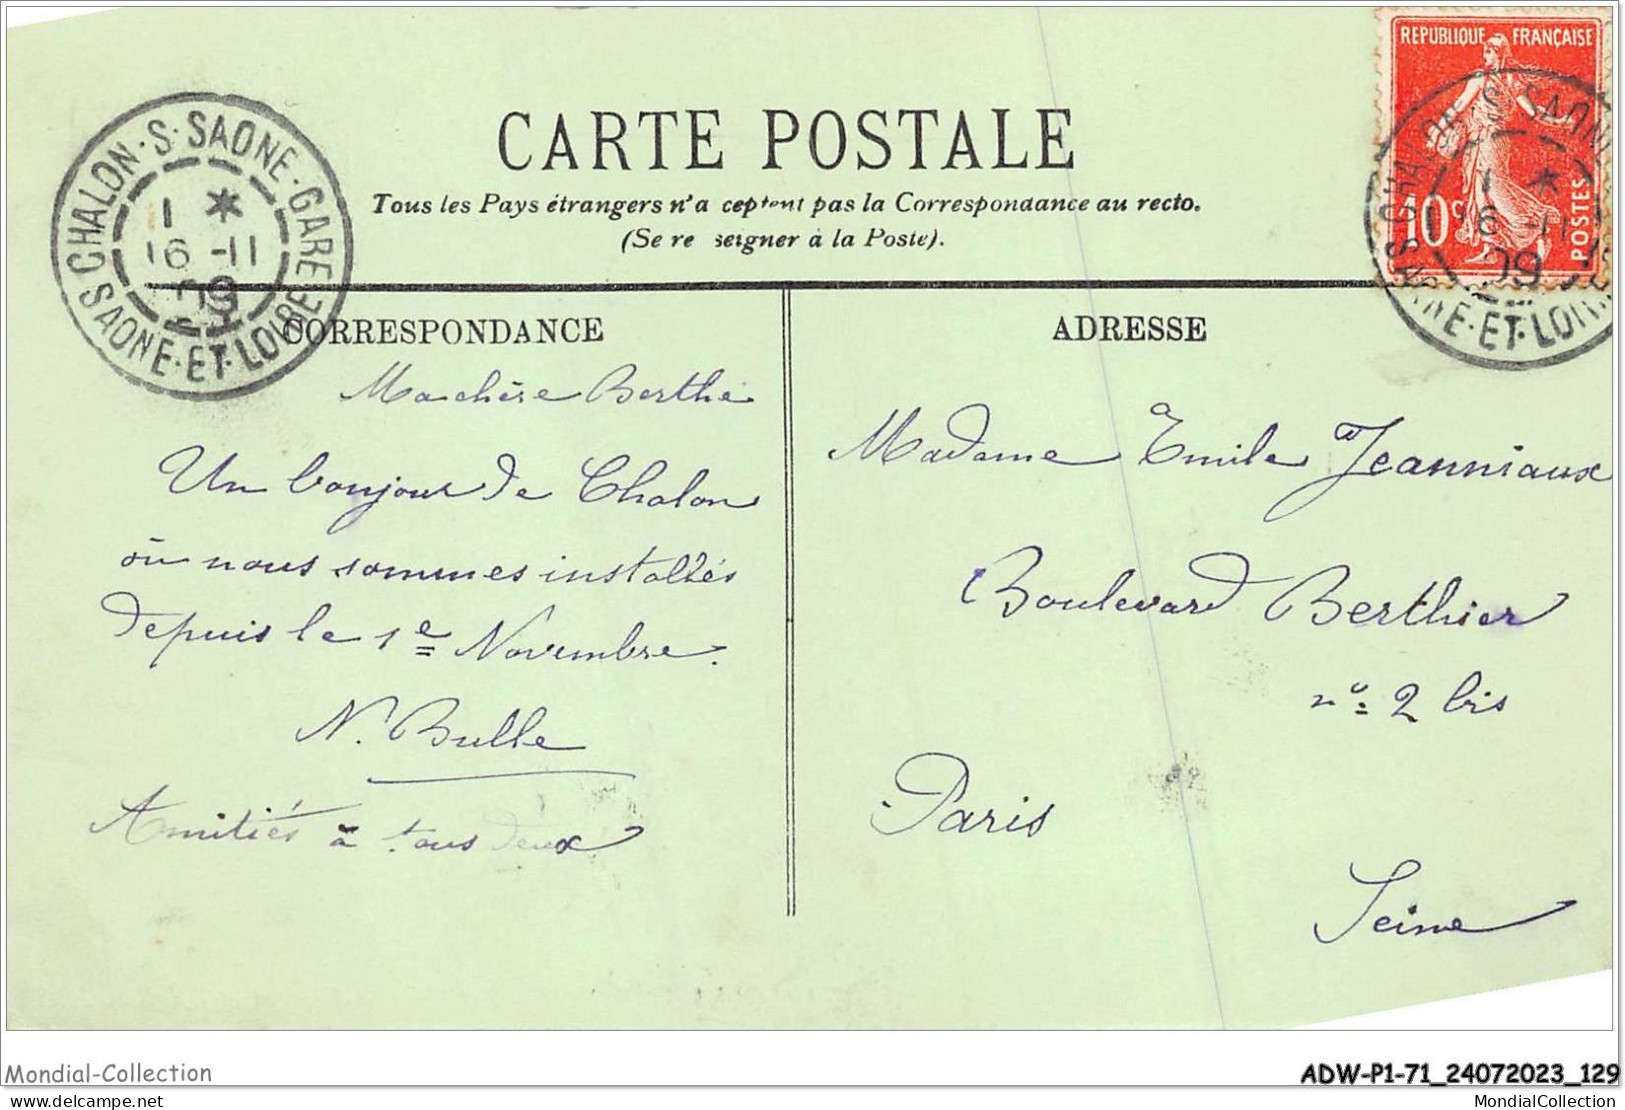 CARTE POSTALE
Tous les Pays étrangers n'acceptent pas la Correspondance au recto.
(Se renseigner à la Poste).
CHALON-S-SAONE-GARE
1 *
16 -11
09
SAONE-ET-LOIRE
REPUBLIQUE FRANÇAISE
10c
POSTES
CHALON-S-SAONE
1 *
16 -11
09
SAONE-ET-LOIRE
CORRESPONDANCE
Ma chère Berthe
Un bonjour de Chalon
où nous sommes installés
depuis le 1e Novembre.
N. Bulle
Amitiés à tous deux
ADRESSE
Madame Emile Jeanniaux
Boulevard Berthier
no. 2 bis
Paris
Seine
Mondial-Collection
ADW-P1-71_24072023_129
delcampe.net
MondialCollection